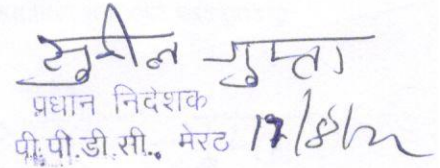 सुनील गुप्ता
प्रधान निदेशक
पी.पी.डी.सी., मेरठ